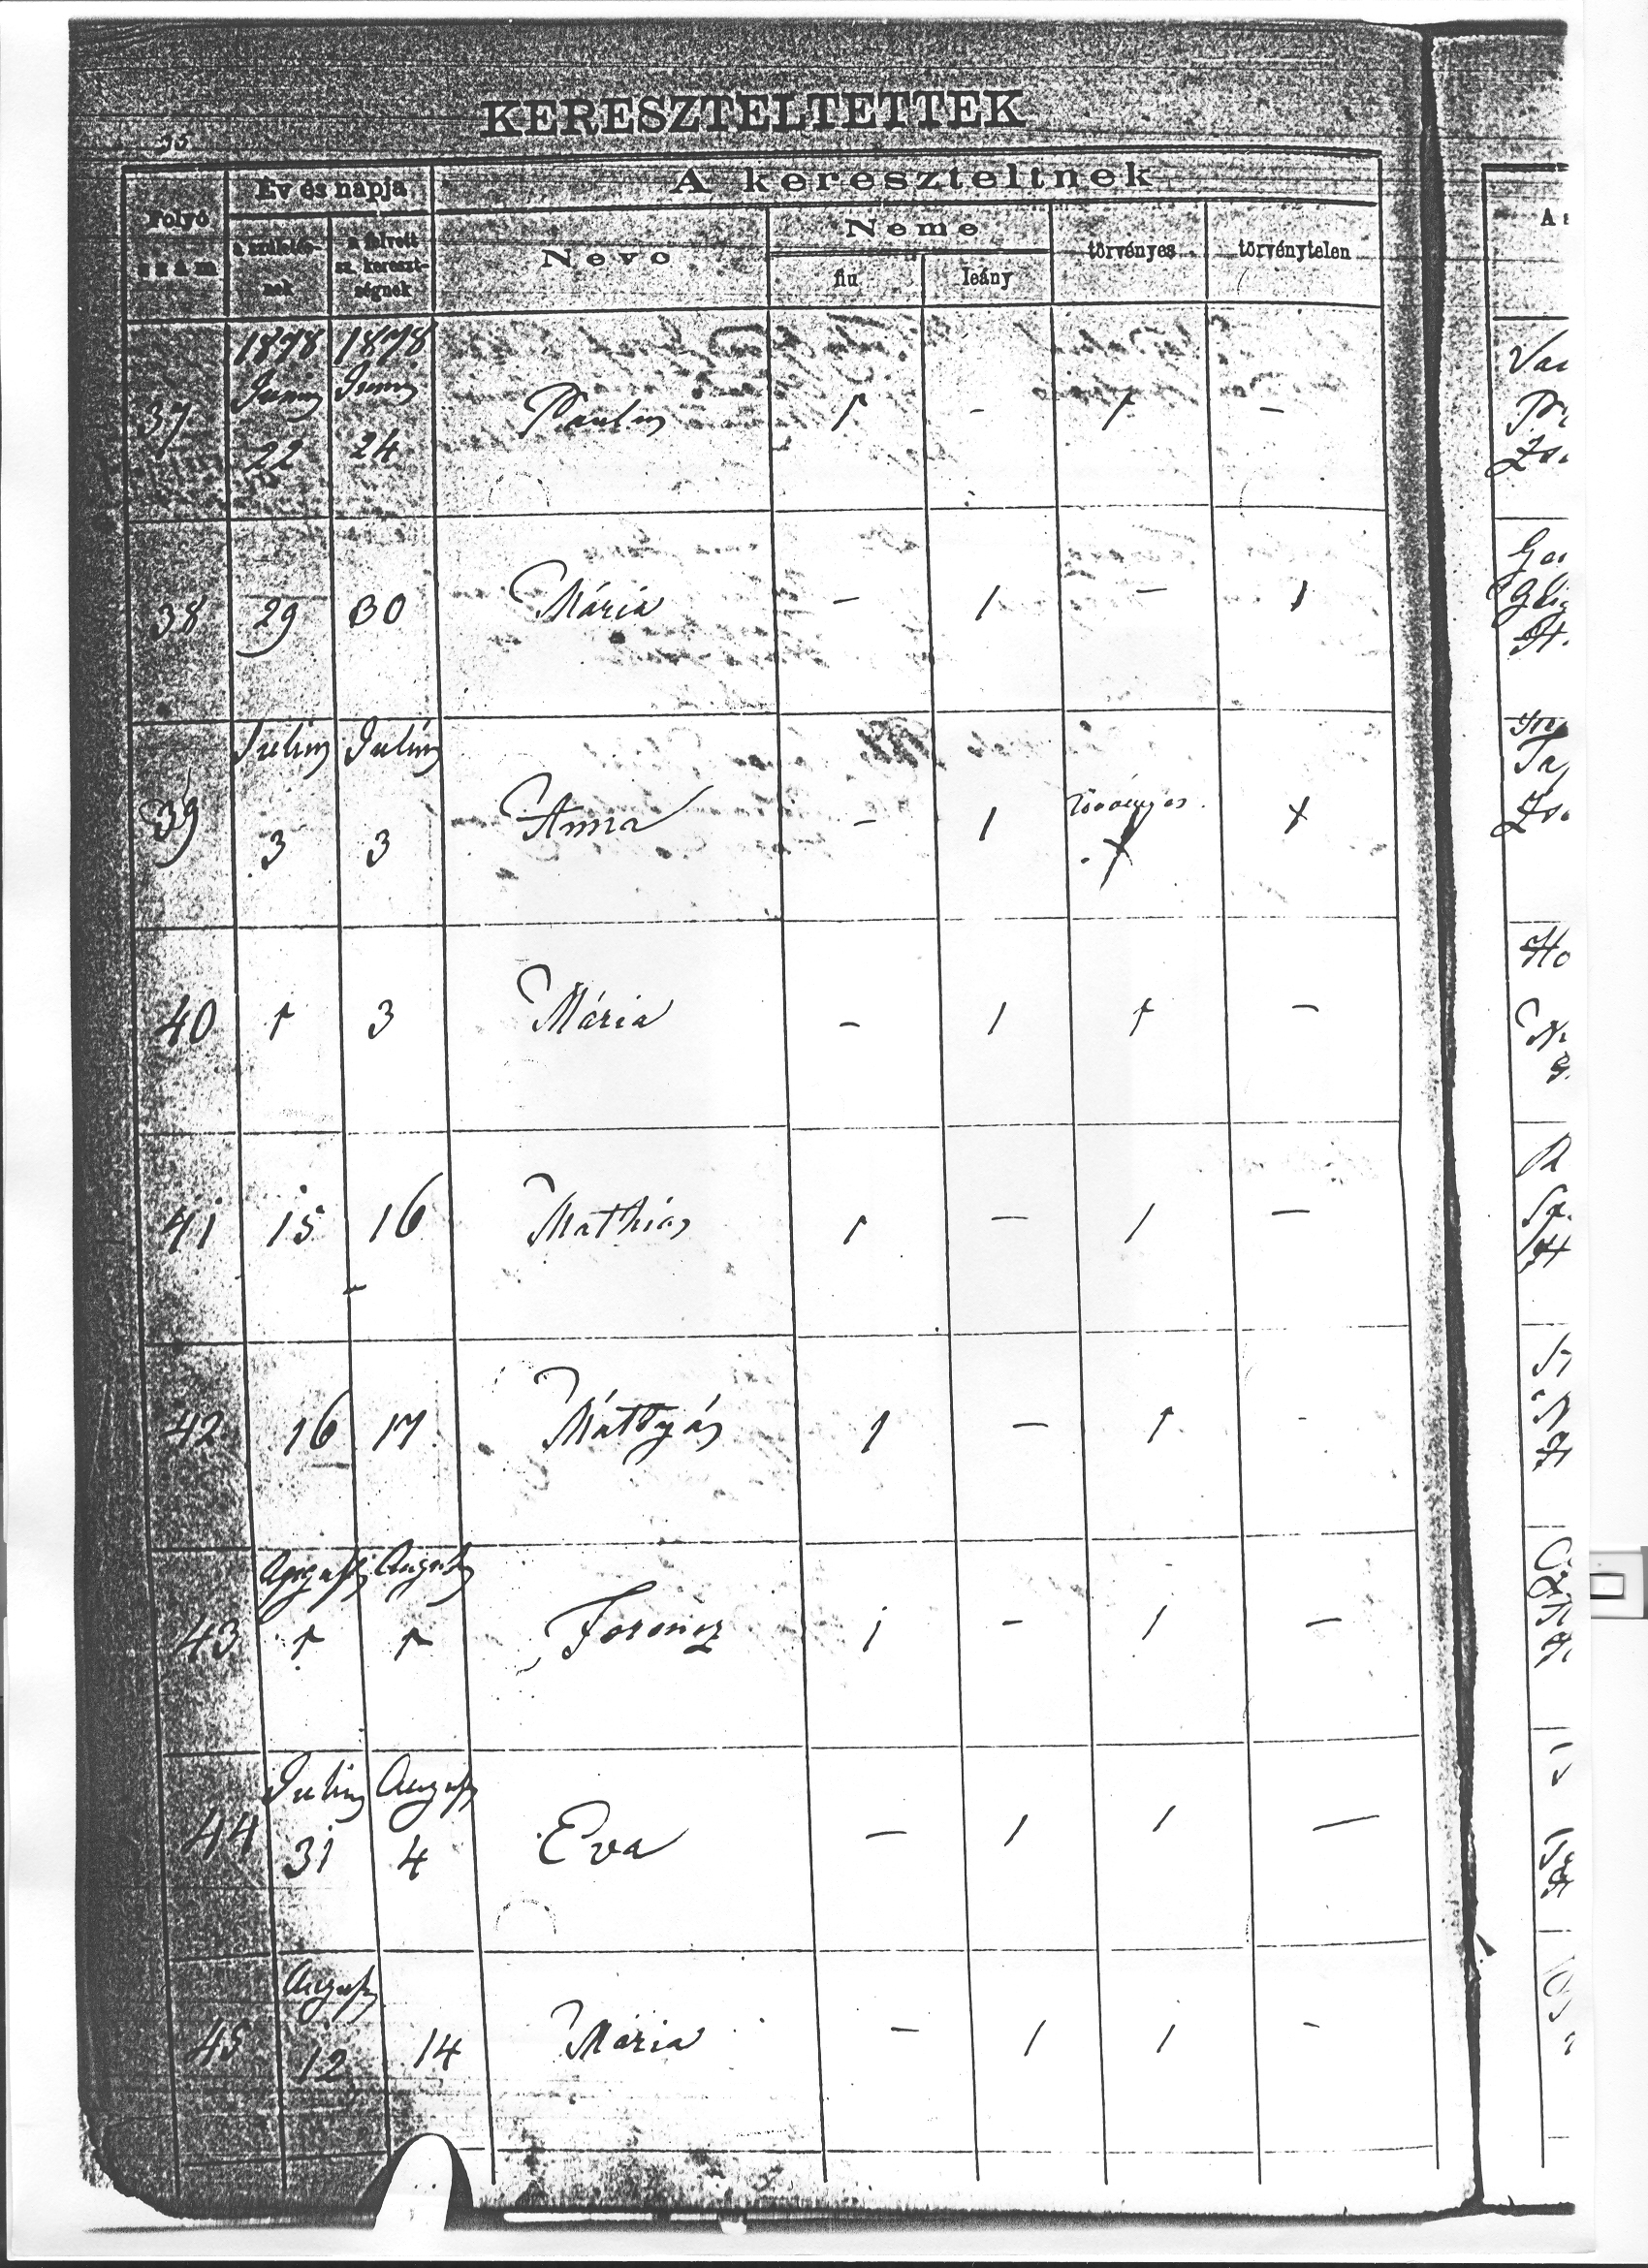 KERESZTELTETTEK
Folyó szám
Év és napja
a születés-nek
a felvett sz. kereszt-ségnek
A kereszteltnek
Neve
Neme
fiu
leány
törvényes
törvénytelen
37 1878 Junius 22 1878 Junius 24 Paulus 1 - 1 -
38 29 30 Mária - 1 - 1
39 Julius 3 Julius 3 Anna - 1 törvényes
40 1 3 Mária - 1 1 -
41 15 16 Mathias 1 - 1 -
42 16 17 Mátyás 1 - 1 -
43 August 1 August 1 Ferencz 1 - 1 -
44 Julius 31 August 4 Eva - 1 1 -
45 August 12 14 Mária - 1 1 -